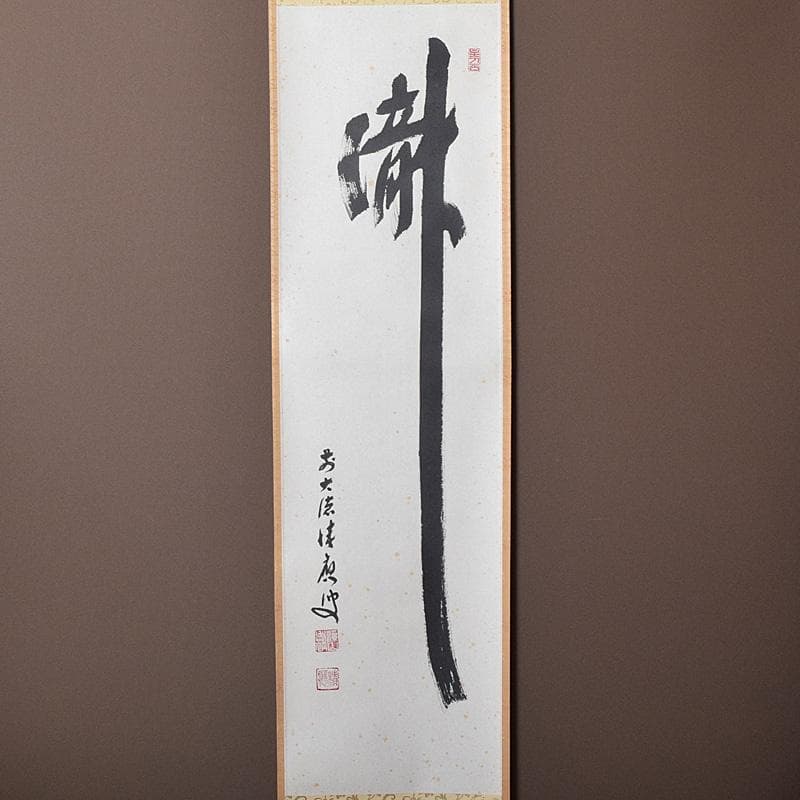 瀧
前大徳積應叟